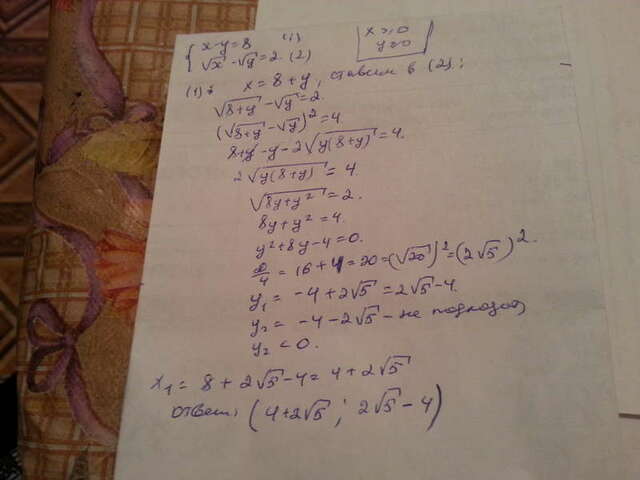 { x-y=8 (1)
√x-√y=2 (2)
x≥0
y≥0
(1): x=8+y, ответим в (2):
√8+y - √y=2.
(√8+y - √y)²=4
8+y+y-2√y(8+y)=4.
2√y(8+y)=4
√8y+y²=2.
8y+y²=4.
y²+8y-4=0.
D/4=16+4=20=(√20)²=(2√5)².
y₁=-4+2√5=2√5-4.
y₂=-4-2√5 - не подходит,
y₂=0.
x₁=8+2√5-4=4+2√5
ответ: (4+2√5; 2√5-4)